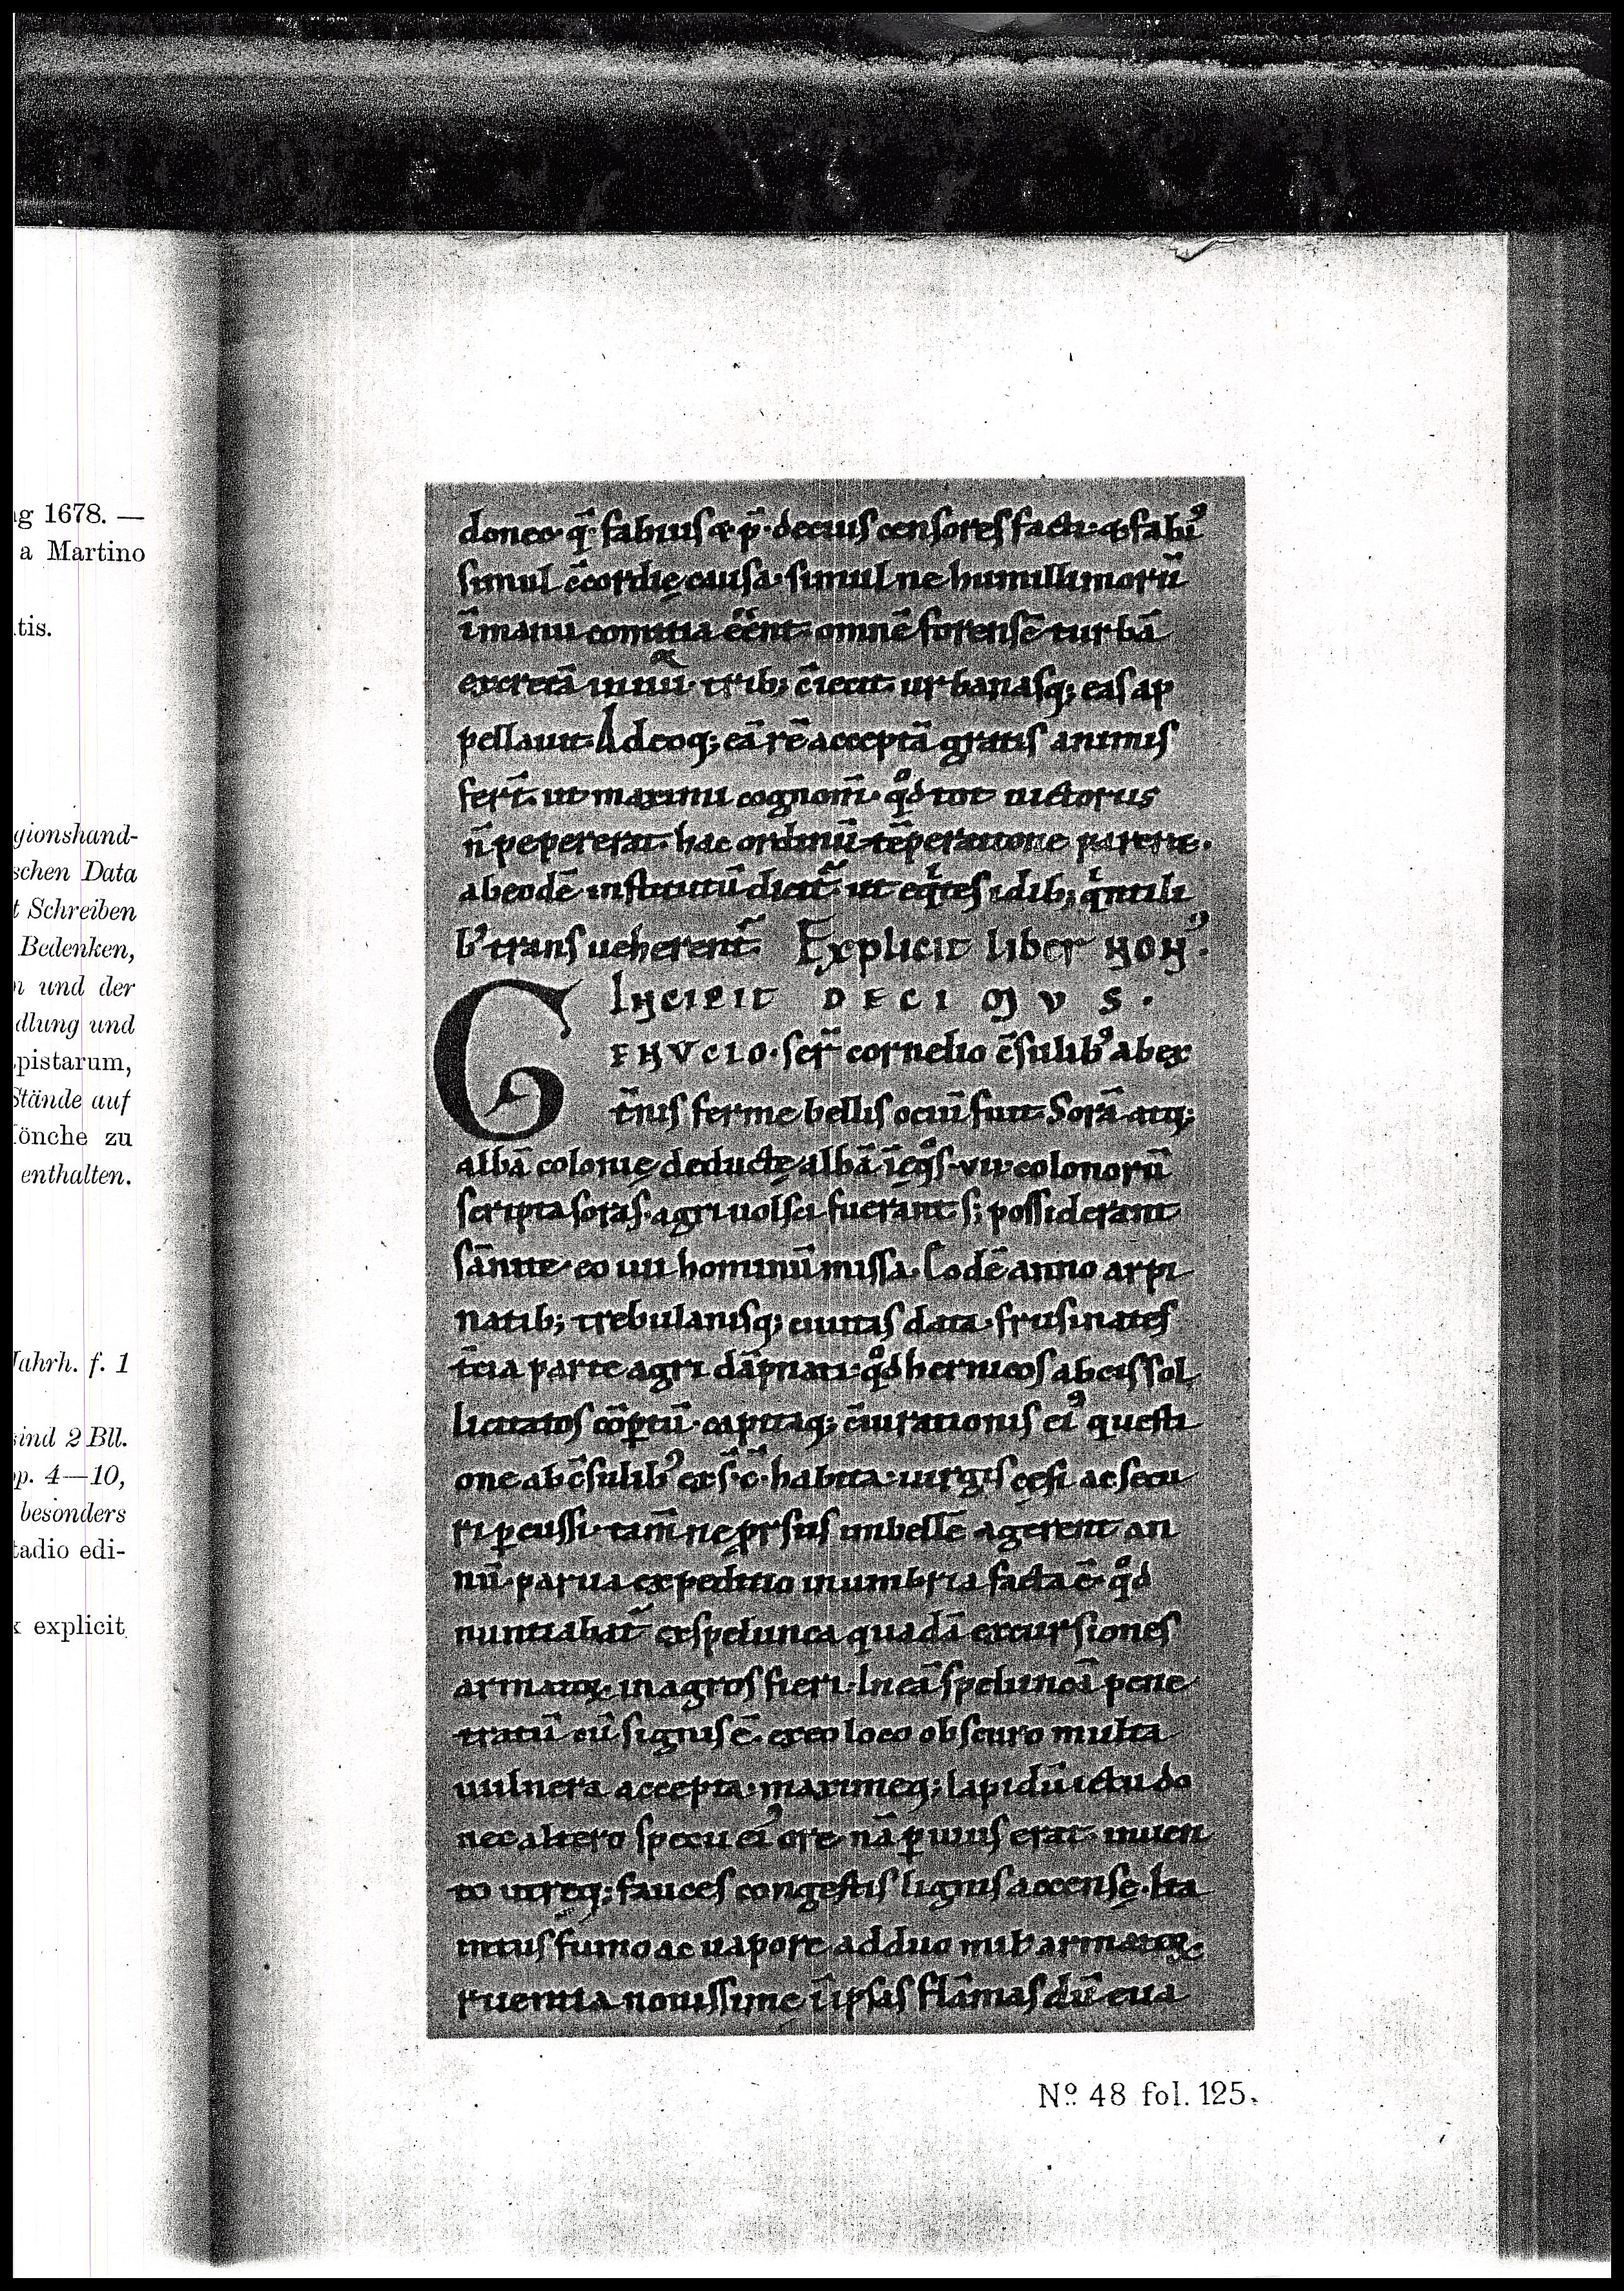 ıg 1678. —
a Martino
tis.
gionshand-
schen Data
t Schreiben
Bedenken,
n und der
dlung und
pistarum,
Stände auf
önche zu
enthalten.
Jahrh. f. 1
sind 2 Bll.
pp. 4—10,
besonders
tadio edi-
x explicit
donec q̄· fabius & p̄· decius censores facti· & fabi᾿
simul c̄cordię causa· simul ne humillimorū
ī manu comitia ēēnt· omnē forensē turbā
excretā in iiii· trib; c̄iecit· urbanasq; eas ap
pellauit· Adeoq; eā rē acceptā gratis animis
fert̄· ut maximi cognom̄· qͦd tot uictoriis
n̄ pepererat· hac ordinū tēperatione pareret·
ab eodē institutū dicit̄· ut eqͥtes idib; qͥntili
b᾿ trans ueherent̄· Explicit liber NON᾿·
INCIPIT DECIMVS·
G ENVCIO· ser̄ cornelio c̄sulib᾿ ab ex
t̄nis ferme bellis ociū fuit· Sorā atq;
albā colonię deductę albā ī eqͦs· vi· colonorū
scripta soras· agri uolsci fuerant s; possiderant
sānite· eo iiii hominū missa· Eodē anno arpi
natib; trebulanisq; ciuitas data· frusinates
t̄cia parte agri dāpnati· qͦd hernicos ab eis sol
licitatos cōptū· capitaq; c̄iurationis ei᾿ questi
one ab c̄sulib᾿ ex s̄· c̄· habita· uirgis cęsi ac secu
ri pcussi· tam̄ ne prsus imbellē agerent an
nū· parua expeditio in umbria facta ē· qͦd
nuntiabat̄ ex spelunca quadā excursiones
armatoꝝ in agros fieri· In eā speluncā pene
tratū cū signis ē· ex eo loco obscuro multa
uulnera accepta· maximeq; lapidū ictu do
nec altero specu ei᾿ ore nā puius erat· inuen
to utreq; fauces congestis lignis accensę· Ita
intus fumo ac uapore ad duo milt̄ armatoꝝ
ruentia nouissime ī ipsas flāmas dū eua
Nº. 48 fol. 125.